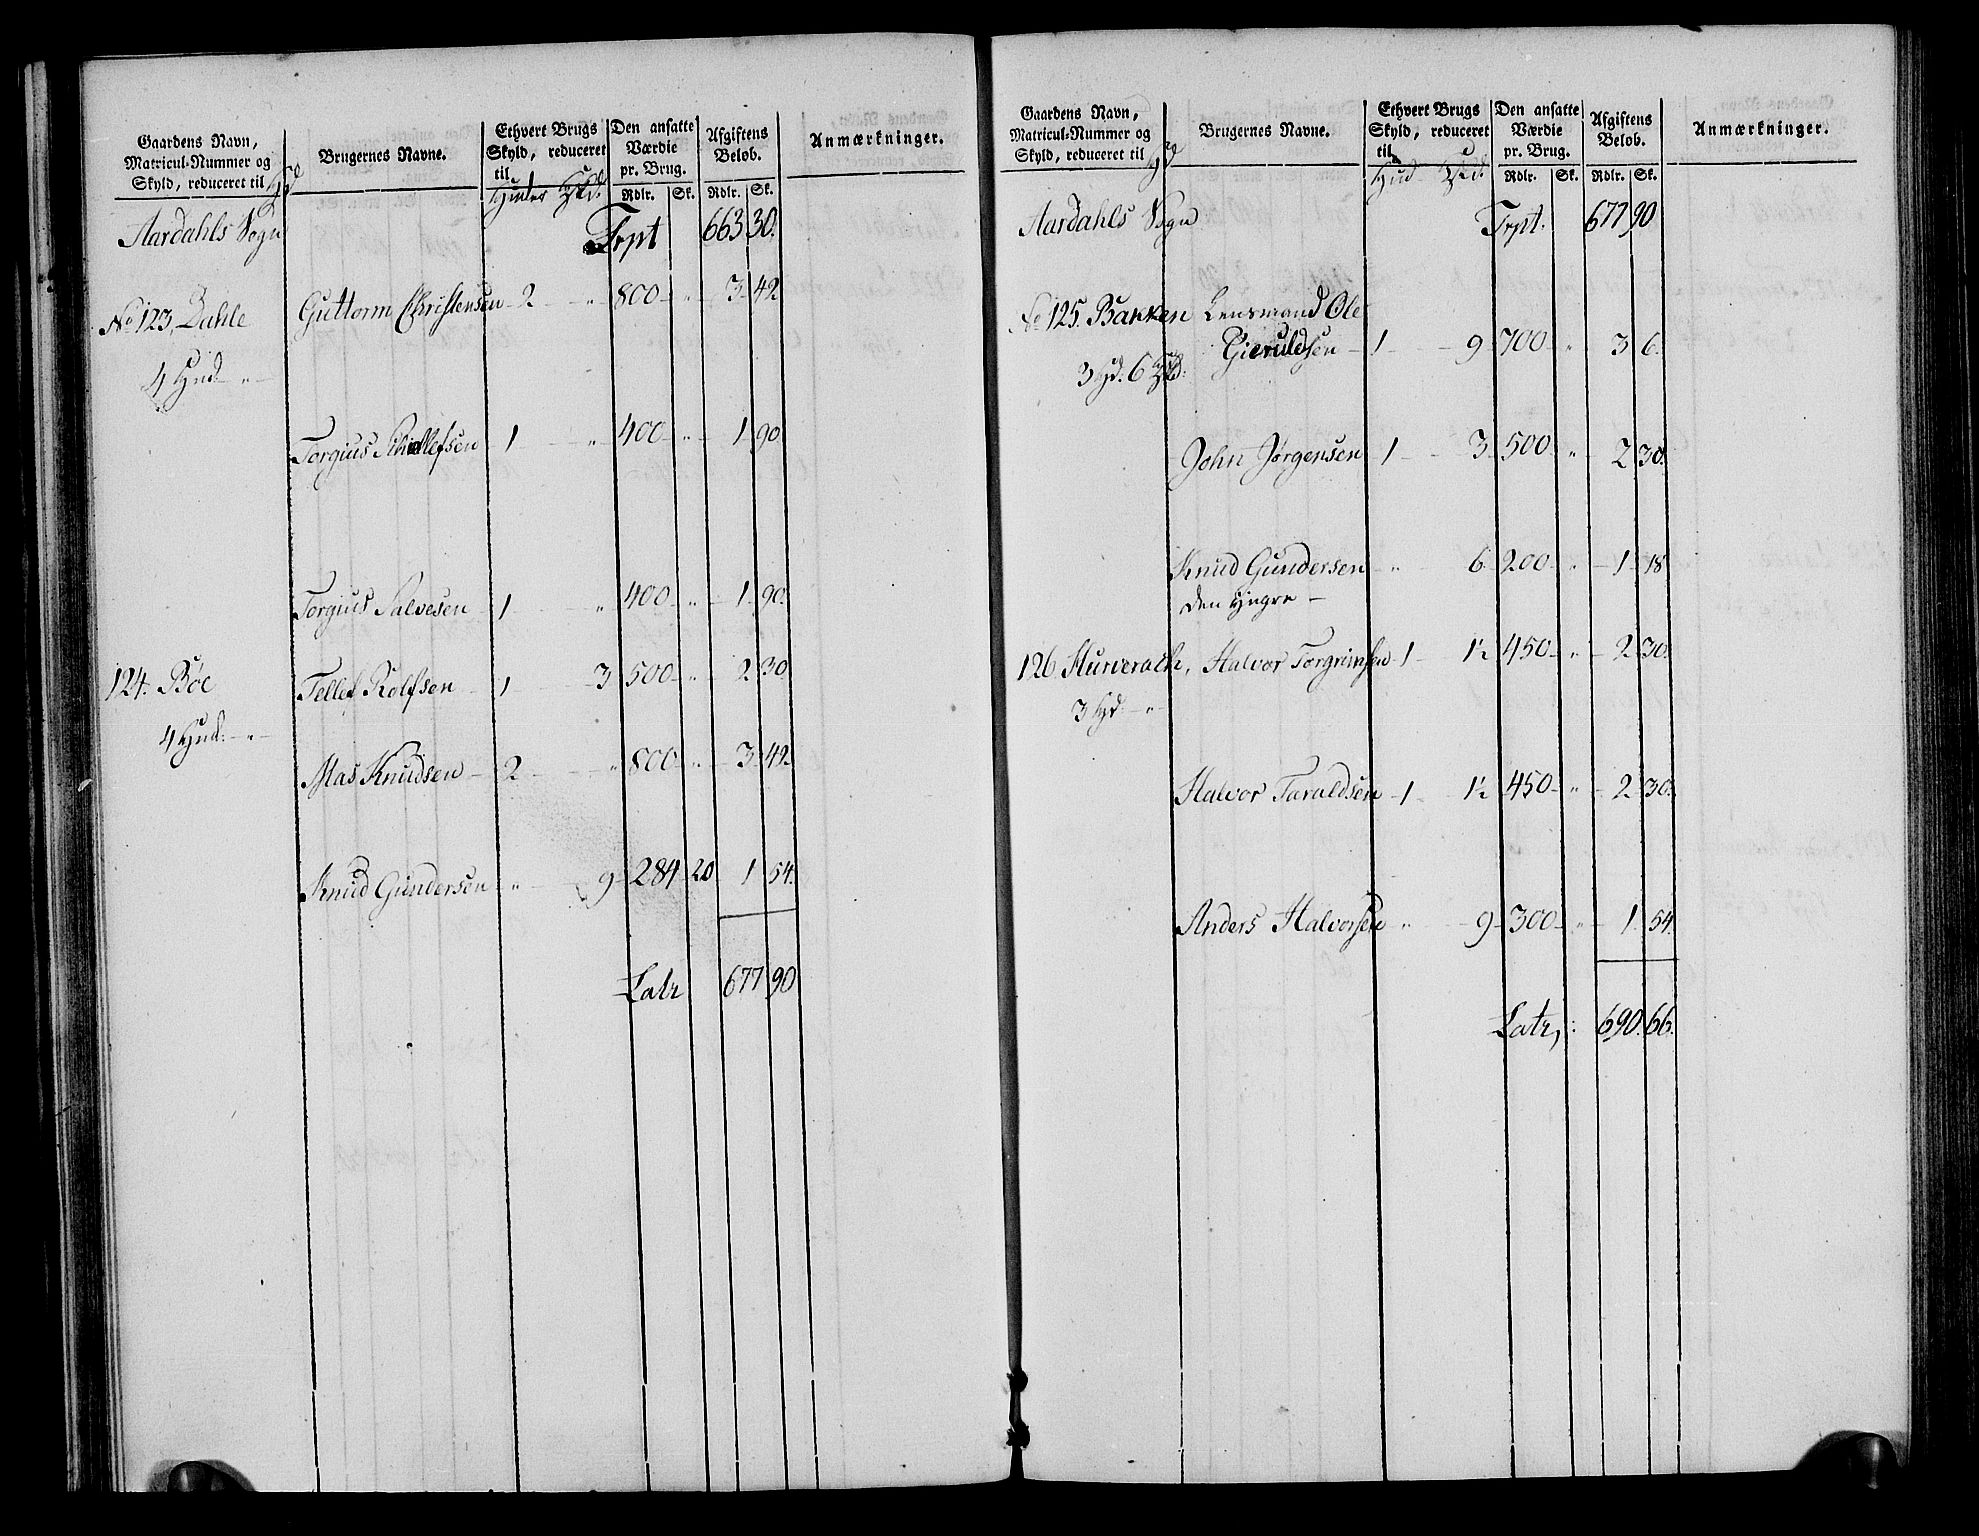 Gaardens Navn,
Matricul-Nummer og
Skyld, reduceret til Hd
Brugernes Navne.
Ethvert Brugs
Skyld, reduceret
til
Huder Skd.
Den ansatte
Værdie
pr. Brug.
Rdlr. Sk.
Afgiftens
Beløb.
Rdlr. Sk.
Anmærkninger.
Aardahls Sogn Trpt 663 30.
No 123, Dahle Guttorm Christensen 2 " 800 " 3 42
4 Hud "
Torgius 1 " 400 " 1 90
Torgius Salvesen 1 " 400 " 1 90.
124. Böe Tellef Rolfsen 1 3 500 " 2 30
4 Hud: "
Mas Knudsen 2 " 800 " 3 42
Knud Gundersen " 9 284 20 1 54.
Latr 677 90
Gaardens Navn,
Matricul-Nummer og
Skyld, reduceret til Hd
Brugernes Navne.
Ethvert Brugs
Skyld, reduceret
til
Hud Skd.
Den ansatte
Værdie
pr. Brug.
Rdlr. Sk.
Afgiftens
Beløb.
Rdlr. Sk.
Anmærkninger.
Aardahls Sogn Trpt. 677 90.
No 125. Bakken Lensmand Ole
Gieruldsen 1 9 700 " 3 6.
3 Hd: 6 Skd:
John Jørgensen 1 3 500 " 2 30.
Knud Gundersen " 6 200 " 1 18
den Yngre
126. Hurverack, Halvor Torgrimsen 1 1½ 450 " 2 30.
3 Hd: "
Halvor Taraldsen 1 1½ 450 " 2 30.
Anders Halvorsen " 9 300 " 1 54.
Latr, : 690. 66.